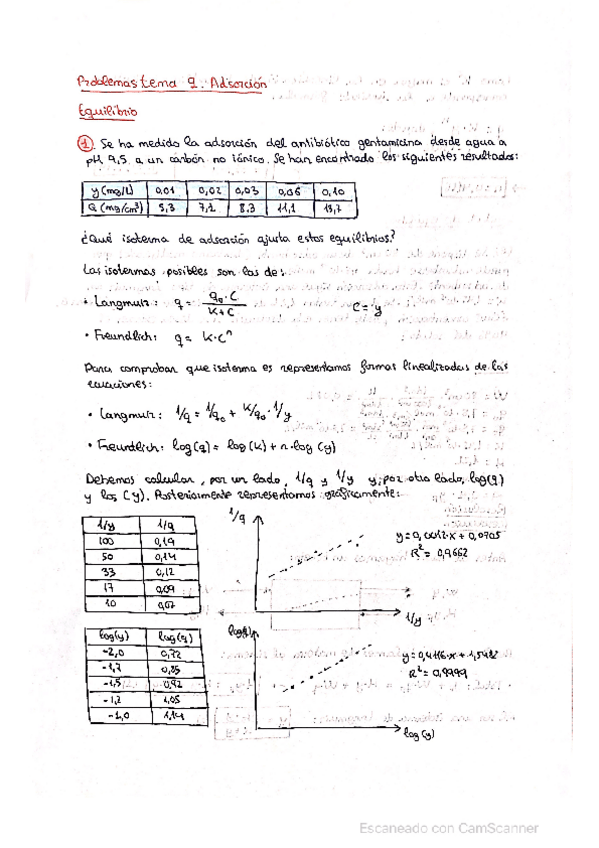 Problemas tema 9. Adsorción
Equilibrio
① Se ha medido la adsorción del antibiótico gentamicina desde agua a
pH 9,5 a un carbón no iónico. Se han encontrado los siguientes resultados:
y (mg/L) 0,01 0,02 0,03 0,06 0,10
Q (mg/cm³) 5,3 7,2 8,3 11,1 13,7
¿Qué isoterma de adsorción ajusta estos equilibrios?
Las isotermas posibles son las de:
• Langmuir: q = q₀·C / K+C C = y
• Freundlich: q = K·Cⁿ
Para comprobar que isoterma es representamos formas linealizadas de las
ecuaciones:
• Langmuir: 1/q = 1/q₀ + K/q₀ · 1/y
• Freundlich: log(q) = log(K) + n·log(y)
Debemos calcular, por un lado, 1/q y 1/y y, por otro lado, log(q)
y log(y). Posteriormente representamos gráficamente:
1/y 1/q
100 0,19
50 0,14
33 0,12
17 0,09
10 0,07
1/q
y = 0,0012·x + 0,0705
R² = 0,9662
1/y
log(y) log(q)
-2,0 0,72
-1,7 0,85
-1,5 0,92
-1,2 1,05
-1,0 1,14
y = 0,4116·x + 1,5482
R² = 0,9999
log(y)
Escaneado con CamScanner